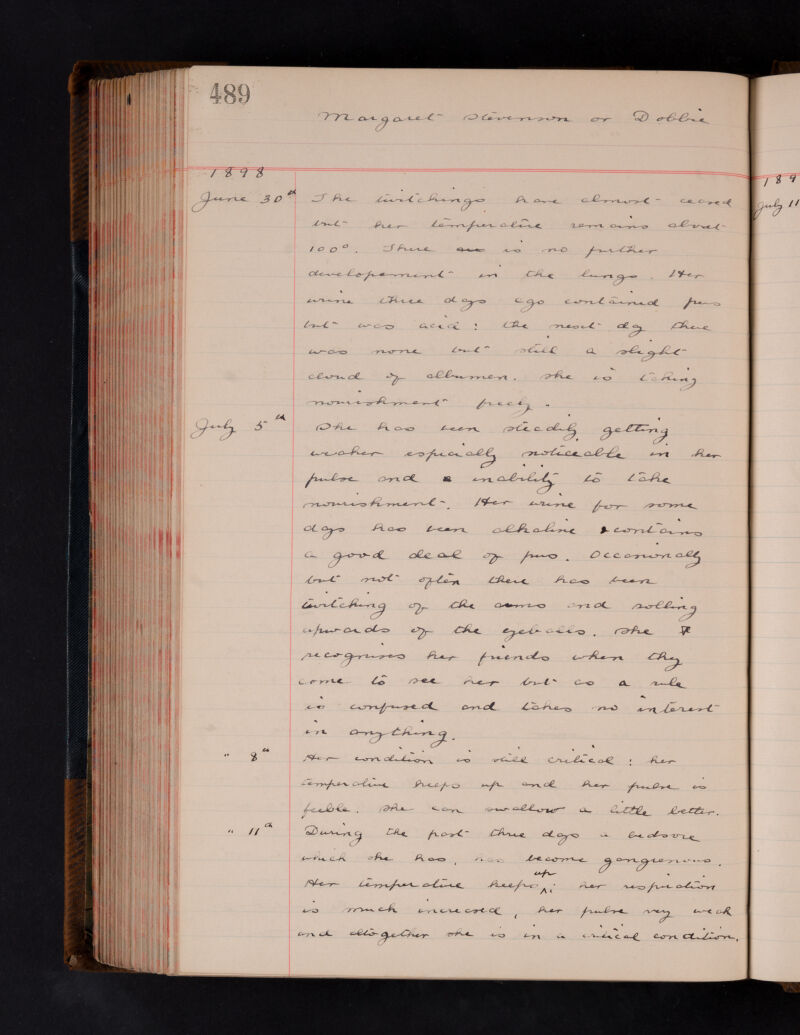 489
Margaret Stevenson or Dobbie
1898
June 30th The twitchings have almost ceased
but her temperature remains about
100°. There is no further
developement in the lungs. Her
urine three days ago contained pus
but was acid: the next day there
was none but still a slight
cloud of albumen. She is taking
nourishment freely.
July 5th She has been steadily getting
weaker espicially noticeable in her
pulse and inability to take
nourishment. Her urine for some
days has been alkaline & contains
a good deal of pus. Occasionally
but not often there has been
twitching of the arms and rolling
upwards of the eyeballs. She
recognises her friends when they
come to see her but as a rule
is confused and takes no interest
in anything.
" 8th Her condition is still critical: her
temperature keeps up and her pulse is
feeble. She can swallow a little better.
" 11th During the past three days a bedsore
which she has, has become gangrenous.
Her temperature keeps up; her respiration
is much increased, her pulse very weak
and altogether she is in a critical condition.
189
July 11